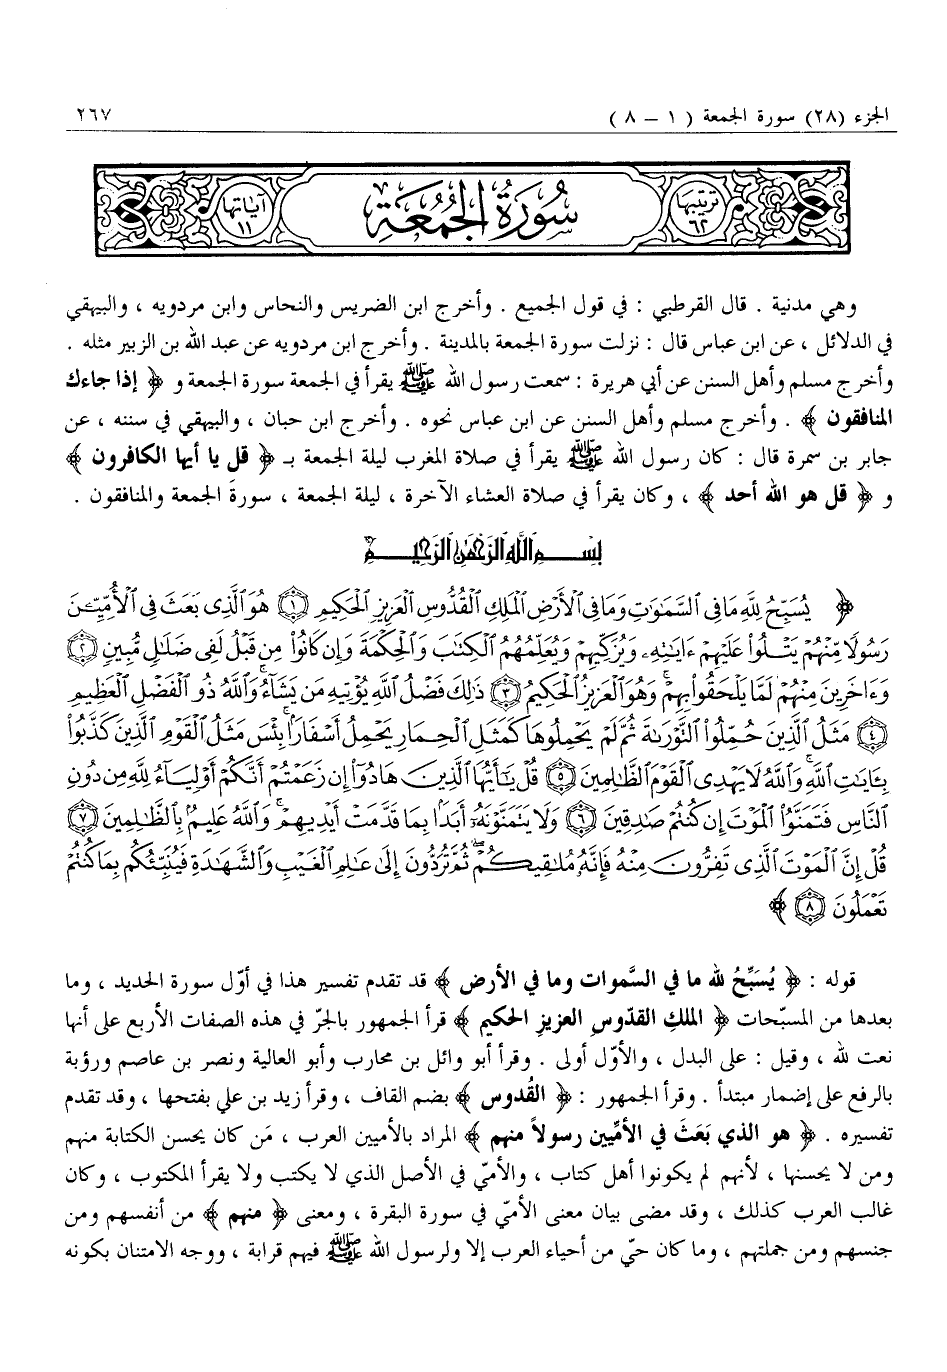 الجزء (٢٨) سورة الجمعة ( ١ – ٨ ) ٢٦٧
ترتيبها ٦٢ سُورَةُ الجُمُعَة آياتها ١١
وهي مدنية . قال القرطبي : في قول الجميع . وأخرج ابن الضريس والنحاس وابن مردويه ، والبيهقي
في الدلائل ، عن ابن عباس قال : نزلت سورة الجمعة بالمدينة . وأخرج ابن مردويه عن عبد الله بن الزبير مثله .
وأخرج مسلم وأهل السنن عن أبي هريرة : سمعت رسول الله ﷺ يقرأ في الجمعة سورة الجمعة و ﴿ إذا جاءك
المنافقون ﴾ . وأخرج مسلم وأهل السنن عن ابن عباس نحوه . وأخرج ابن حبان ، والبيهقي في سننه ، عن
جابر بن سمرة قال : كان رسول الله ﷺ يقرأ في صلاة المغرب ليلة الجمعة بـ ﴿ قل يا أيها الكافرون ﴾
و ﴿ قل هو الله أحد ﴾ ، وكان يقرأ في صلاة العشاء الآخرة ، ليلة الجمعة ، سورةَ الجمعة والمنافقون .
بِسْمِ ٱللَّهِ ٱلرَّحْمَٰنِ ٱلرَّحِيمِ
﴿ يُسَبِّحُ لِلَّهِ مَا فِى ٱلسَّمَٰوَٰتِ وَمَا فِى ٱلْأَرْضِ ٱلْمَلِكِ ٱلْقُدُّوسِ ٱلْعَزِيزِ ٱلْحَكِيمِ ١ هُوَ ٱلَّذِى بَعَثَ فِى ٱلْأُمِّيِّـۧنَ
رَسُولًا مِّنْهُمْ يَتْلُوا۟ عَلَيْهِمْ ءَايَٰتِهِۦ وَيُزَكِّيهِمْ وَيُعَلِّمُهُمُ ٱلْكِتَٰبَ وَٱلْحِكْمَةَ وَإِن كَانُوا۟ مِن قَبْلُ لَفِى ضَلَٰلٍ مُّبِينٍ ٢
وَءَاخَرِينَ مِنْهُمْ لَمَّا يَلْحَقُوا۟ بِهِمْ ۚ وَهُوَ ٱلْعَزِيزُ ٱلْحَكِيمُ ٣ ذَٰلِكَ فَضْلُ ٱللَّهِ يُؤْتِيهِ مَن يَشَآءُ ۚ وَٱللَّهُ ذُو ٱلْفَضْلِ ٱلْعَظِيمِ
٤ مَثَلُ ٱلَّذِينَ حُمِّلُوا۟ ٱلتَّوْرَىٰةَ ثُمَّ لَمْ يَحْمِلُوهَا كَمَثَلِ ٱلْحِمَارِ يَحْمِلُ أَسْفَارًۢا ۚ بِئْسَ مَثَلُ ٱلْقَوْمِ ٱلَّذِينَ كَذَّبُوا۟
بِـَٔايَٰتِ ٱللَّهِ ۚ وَٱللَّهُ لَا يَهْدِى ٱلْقَوْمَ ٱلظَّٰلِمِينَ ٥ قُلْ يَٰٓأَيُّهَا ٱلَّذِينَ هَادُوٓا۟ إِن زَعَمْتُمْ أَنَّكُمْ أَوْلِيَآءُ لِلَّهِ مِن دُونِ
ٱلنَّاسِ فَتَمَنَّوُا۟ ٱلْمَوْتَ إِن كُنتُمْ صَٰدِقِينَ ٦ وَلَا يَتَمَنَّوْنَهُۥٓ أَبَدًۢا بِمَا قَدَّمَتْ أَيْدِيهِمْ ۚ وَٱللَّهُ عَلِيمٌۢ بِٱلظَّٰلِمِينَ ٧
قُلْ إِنَّ ٱلْمَوْتَ ٱلَّذِى تَفِرُّونَ مِنْهُ فَإِنَّهُۥ مُلَٰقِيكُمْ ۖ ثُمَّ تُرَدُّونَ إِلَىٰ عَٰلِمِ ٱلْغَيْبِ وَٱلشَّهَٰدَةِ فَيُنَبِّئُكُم بِمَا كُنتُمْ
تَعْمَلُونَ ٨ ﴾
قوله : ﴿ يُسَبِّحُ لله ما في السَّموات وما في الأرض ﴾ قد تقدم تفسير هذا في أوّل سورة الحديد ، وما
بعدها من المسبّحات ﴿ الملكِ القدّوسِ العزيزِ الحكيم ﴾ قرأ الجمهور بالجرّ في هذه الصفات الأربع على أنها
نعت لله ، وقيل : على البدل ، والأوّل أولى . وقرأ أبو وائل بن محارب وأبو العالية ونصر بن عاصم ورؤبة
بالرفع على إضمار مبتدأ . وقرأ الجمهور : ﴿ القُدوس ﴾ بضم القاف ، وقرأ زيد بن علي بفتحها ، وقد تقدم
تفسيره . ﴿ هو الذي بَعَثَ في الأمِّيين رسولاً منهم ﴾ المراد بالأميين العرب ، مَن كان يحسن الكتابة منهم
ومن لا يحسنها ، لأنهم لم يكونوا أهل كتاب ، والأميّ في الأصل الذي لا يكتب ولا يقرأ المكتوب ، وكان
غالب العرب كذلك ، وقد مضى بيان معنى الأميّ في سورة البقرة ، ومعنى ﴿ منهم ﴾ من أنفسهم ومن
جنسهم ومن جملتهم ، وما كان حيّ من أحياء العرب إلا ولرسول الله ﷺ فيهم قرابة ، ووجه الامتنان بكونه